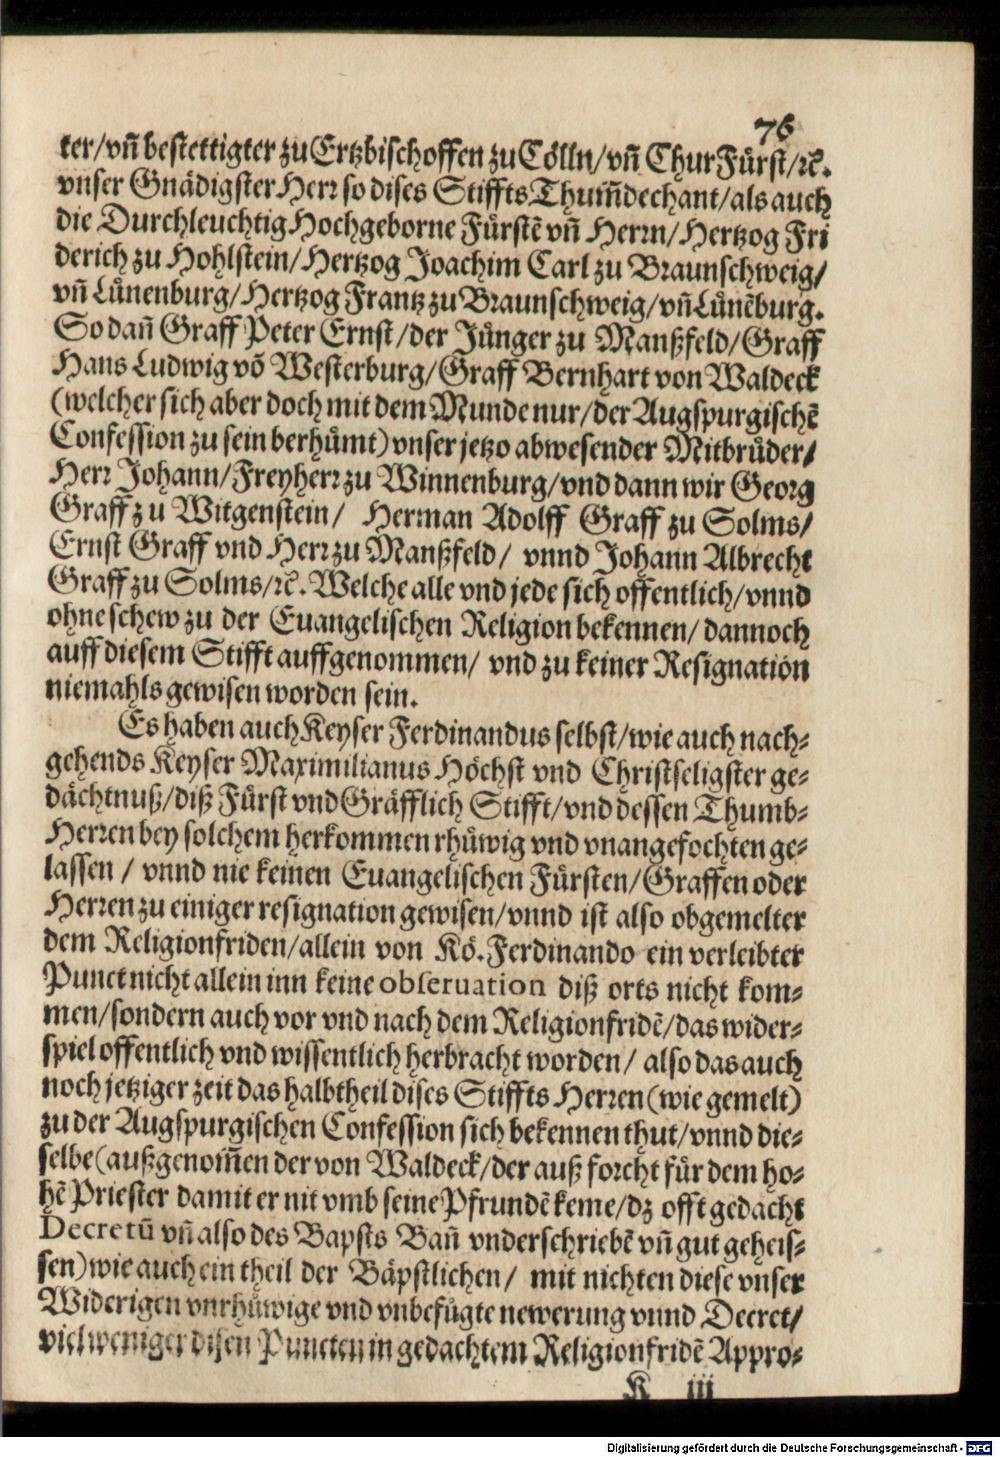 76
ter/vñ bestettigter zu Ertzbischoffen zu Cölln/vñ ChurFürst/ꝛc̃.
vnser Gnädigster Herr so dises Stiffts Thum̃dechant/als auch
die Durchleuchtig Hochgeborne Fürstẽ vñ Herrn/Hertzog Fri
derich zu Hohlstein/Hertzog Joachim Carl zu Braunschweig/
vñ Lünenburg/Hertzog Frantz zu Braunschweig/vñ Lünẽburg.
So dañ Graff Peter Ernst/der Jünger zu Manßfeld/Graff
Hans Ludwig võ Westerburg/Graff Bernhart von Waldeck
(welcher sich aber doch mit dem Munde nur/der Augspurgischẽ
Confession zu sein berhümt) vnser jetzo abwesender Mitbrüder/
Herr Johann/Freyherr zu Winnenburg/vnd dann wir Georg
Graff zu Witgenstein/ Herman Adolff Graff zu Solms/
Ernst Graff vnd Herr zu Manßfeld/ vnnd Johann Albrecht
Graff zu Solms/ꝛc̃. Welche alle vnd jede sich offentlich/vnnd
ohne schew zu der Euangelischen Religion bekennen/dannoch
auff diesem Stifft auffgenommen/ vnd zu keiner Resignation
niemahls gewisen worden sein.
Es haben auch Keyser Ferdinandus selbst/wie auch nach⸗
gehends Keyser Maximilianus Höchst vnd Christseligster ge⸗
dächtnuß/diß Fürst vnd Gräfflich Stifft/vnd dessen Thumb⸗
Herren bey solchem herkommen rhüwig vnd vnangefochten ge⸗
lassen / vnnd nie keinen Euangelischen Fürsten/Graffen oder
Herren zu einiger resignation gewisen/vnnd ist also obgemelter
dem Religionfriden/allein von Kö. Ferdinando ein verleibter
Punct nicht allein inn keine obseruation diß orts nicht kom⸗
men/sondern auch vor vnd nach dem Religionfridẽ/das wider⸗
spiel offentlich vnd wissentlich herbracht worden/ also das auch
noch jetziger zeit das halbtheil dises Stiffts Herren (wie gemelt)
zu der Augspurgischen Confession sich bekennen thut/vnnd die⸗
selbe (außgenom̃en der von Waldeck/der auß forcht für dem ho⸗
hẽ Priester damit er nit vmb seine Pfrundẽ keme/dz offt gedacht
Decretũ vñ also des Bapsts Bañ vnderschriebẽ vñ gut geheis⸗
sen) wie auch ein theil der Bäpstlichen/ mit nichten diese vnser
Widerigen vnrhüwige vnd vnbefügte newerung vnnd Decret/
viel weniger disen Puncten in gedachtem Religionfridẽ Appro⸗
K iii
Digitalisierung gefördert durch die Deutsche Forschungsgemeinschaft - DFG